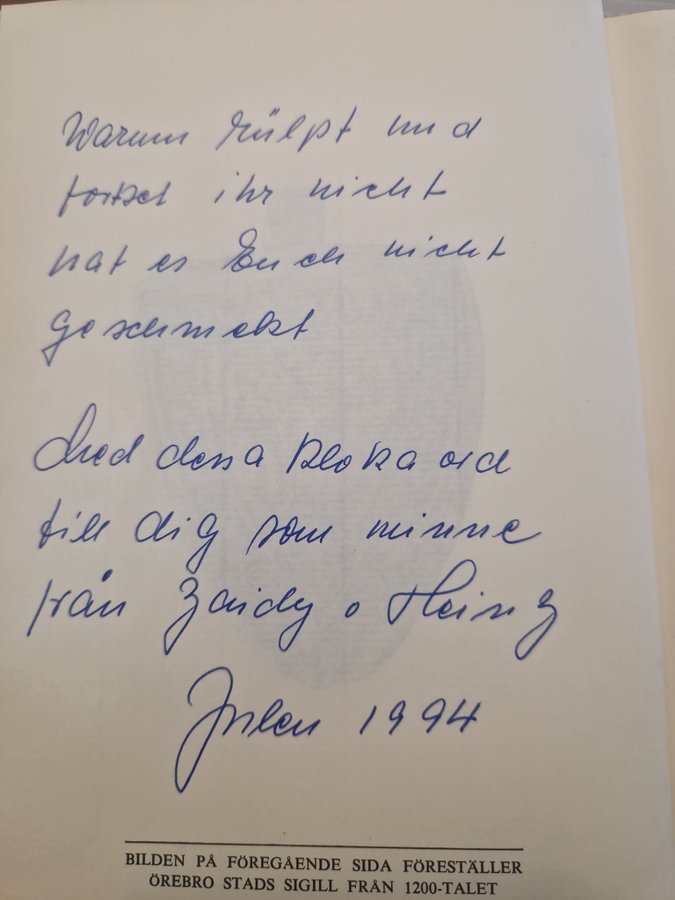 Warum rülpst und
fortzet ihr nicht
hat es Euch nicht
geschmekt
Med dessa kloka ord
till dig som minne
från Zaidy o Heinz
Julen 1994
BILDEN PÅ FÖREGÅENDE SIDA FÖRESTÄLLER
ÖREBRO STADS SIGILL FRÅN 1200-TALET